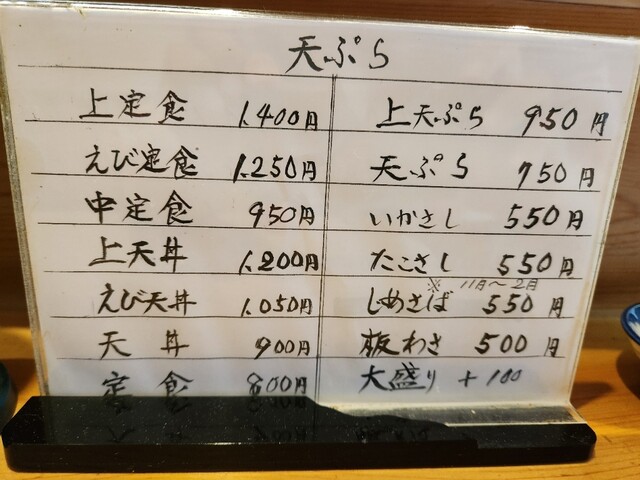 天ぷら
上定食 1.400円
えび定食 1.250円
中定食 950円
上天丼 1.200円
えび天丼 1.050円
天丼 900円
定食 800円
上天ぷら 950円
天ぷら 750円
いかさし 550円
たこさし 550円
※ 11月～2月
じめさば 550円
板わさ 500円
大盛り +100